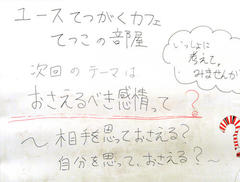 ユースてつがくカフェ
てつこの部屋
いっしょに
考えて
みませんか
次回のテーマは
おさえるべき感情って?
〜相手を思っておさえる?
自分を思って、おさえる?〜